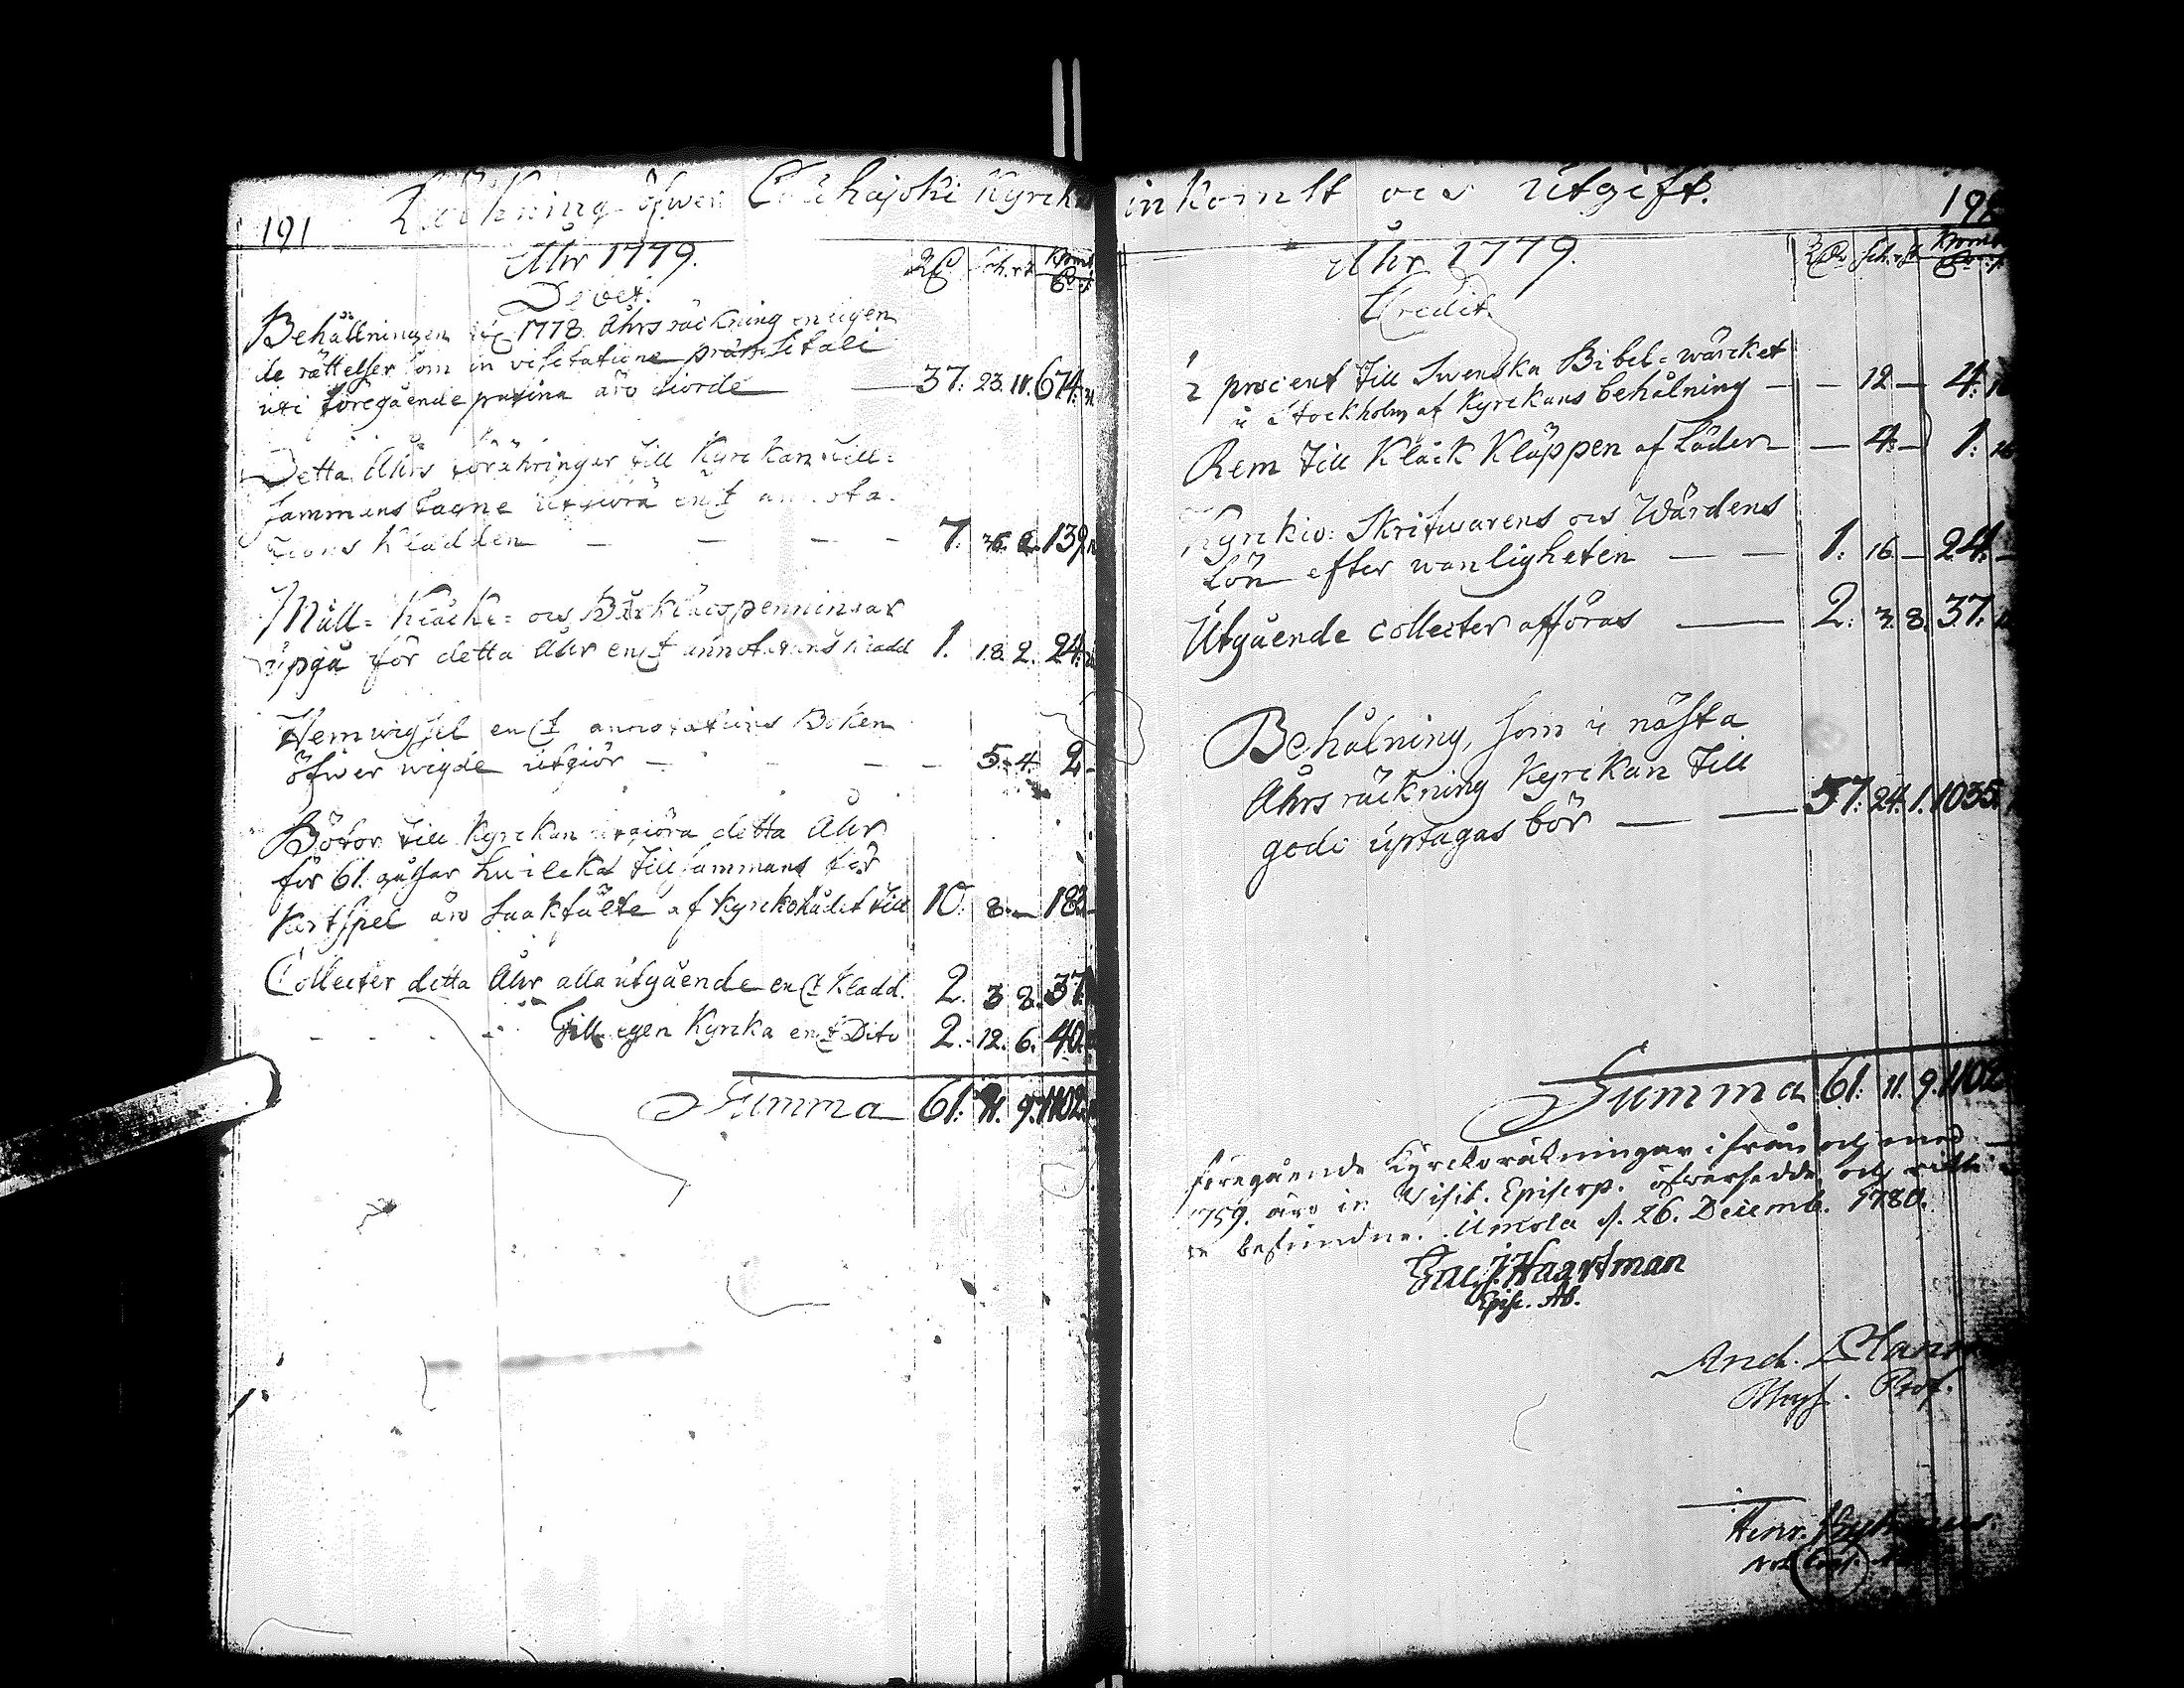 191 Räkning öfwer Cauhajoki Kyrko
Åhr 1779.
Debet.
Behållningen af 1778 Åhrs räckning enligen
de rättelser som in visitatione præpositali
uti föregående pagina äro giorde — 37. 23. 11. 674.
Detta Åhrs förähringar till Kyrckan till=
sammans tagne utgiöra en\[l\]t annota=
tions Kladden — — — — 7. 36. 2. 139
Mull= Klåcke= och Bårklädspenningar
upgå för detta Åhr en\[l\]t annotations kladd 1. 18. 2. 24.
Hemwigsel en\[l\]t annotations Boken
öfwer wigde utgiör — — — 5. 4. 2
Böter till Kyrckan utgiöra detta Åhr
för 61. gåssar hwilcka tillsammans för
Kortspel äro saakfälte af Kyrckorådet till 10. 8. — 183
Collecter detta Åhr alla utgående en\[l\]t Kladd. 2. 3 8. 37.
Till egen Kyrcka en\[l\]t Dito 2. 12. 6. 40.
Summa 61. 11. 9. 1102.
inkomst och Utgift.
Åhr 1779.
Credit.
1/2 procent till Swenska Bibel=wärcket
i Stockholm af Kyrckans behålning — — 12 — 4.
Rem till Kläck Kläppen af Läder — — 4. — 1. 16
Kyrkio: Skrifwarens och Wärdens
Lön efter wanligheten — — 1. 16 — 24.
Utgående collecter afföras — 2. 3. 8. 37.
Behålning, som i nästa
Åhrs räckning Kyrckan till
godo uptagas bör — — 57. 24. 1. 1035.
Summa 61. 11. 9. 1102
Föregående Kyrckoräkningar ifrån och med
1759. äro in Visit. Episcop. öfwersedde och rikti
ge befundne. Ilmola d. 26. Decemb. 1780.
Jac. Haartman
Episc. Ab.
And.
Prof.
Henr.